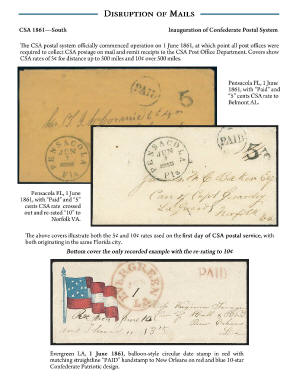 DISRUPTION OF MAILS
CSA 1861—South
Inauguration of Confederate Postal System
The CSA postal system officially commenced operation on 1 June 1861, at which point all post offices were
required to collect CSA postage on mail and remit receipts to the CSA Post Office Department. Covers show
CSA rates of 5¢ for distance up to 500 miles and 10¢ over 500 miles.
PAID
5
PENSACOLA
JUN
Fla
Pensacola FL, 1 June
1861, with "Paid" and
"5" cents CSA rate to
Belmont AL.
PENSACOLA
JUN
Fla
PAID
Norfolk
Va
Pensacola FL, 1 June
1861, with "Paid" and "5"
cents CSA rate crossed
out and re-rated "10" to
Norfolk VA.
The above covers illustrate both the 5¢ and 10¢ rates used on the first day of CSA postal service, with
both originating in the same Florida city.
Bottom cover the only recorded example with the re-rating to 10¢
EVERGREEN
LA
1
PAID
New Orleans
La
Evergreen LA, 1 June 1861, balloon-style circular date stamp in red with
matching straightline "PAID" handstamp to New Orleans on red and blue 10-star
Confederate Patriotic design.